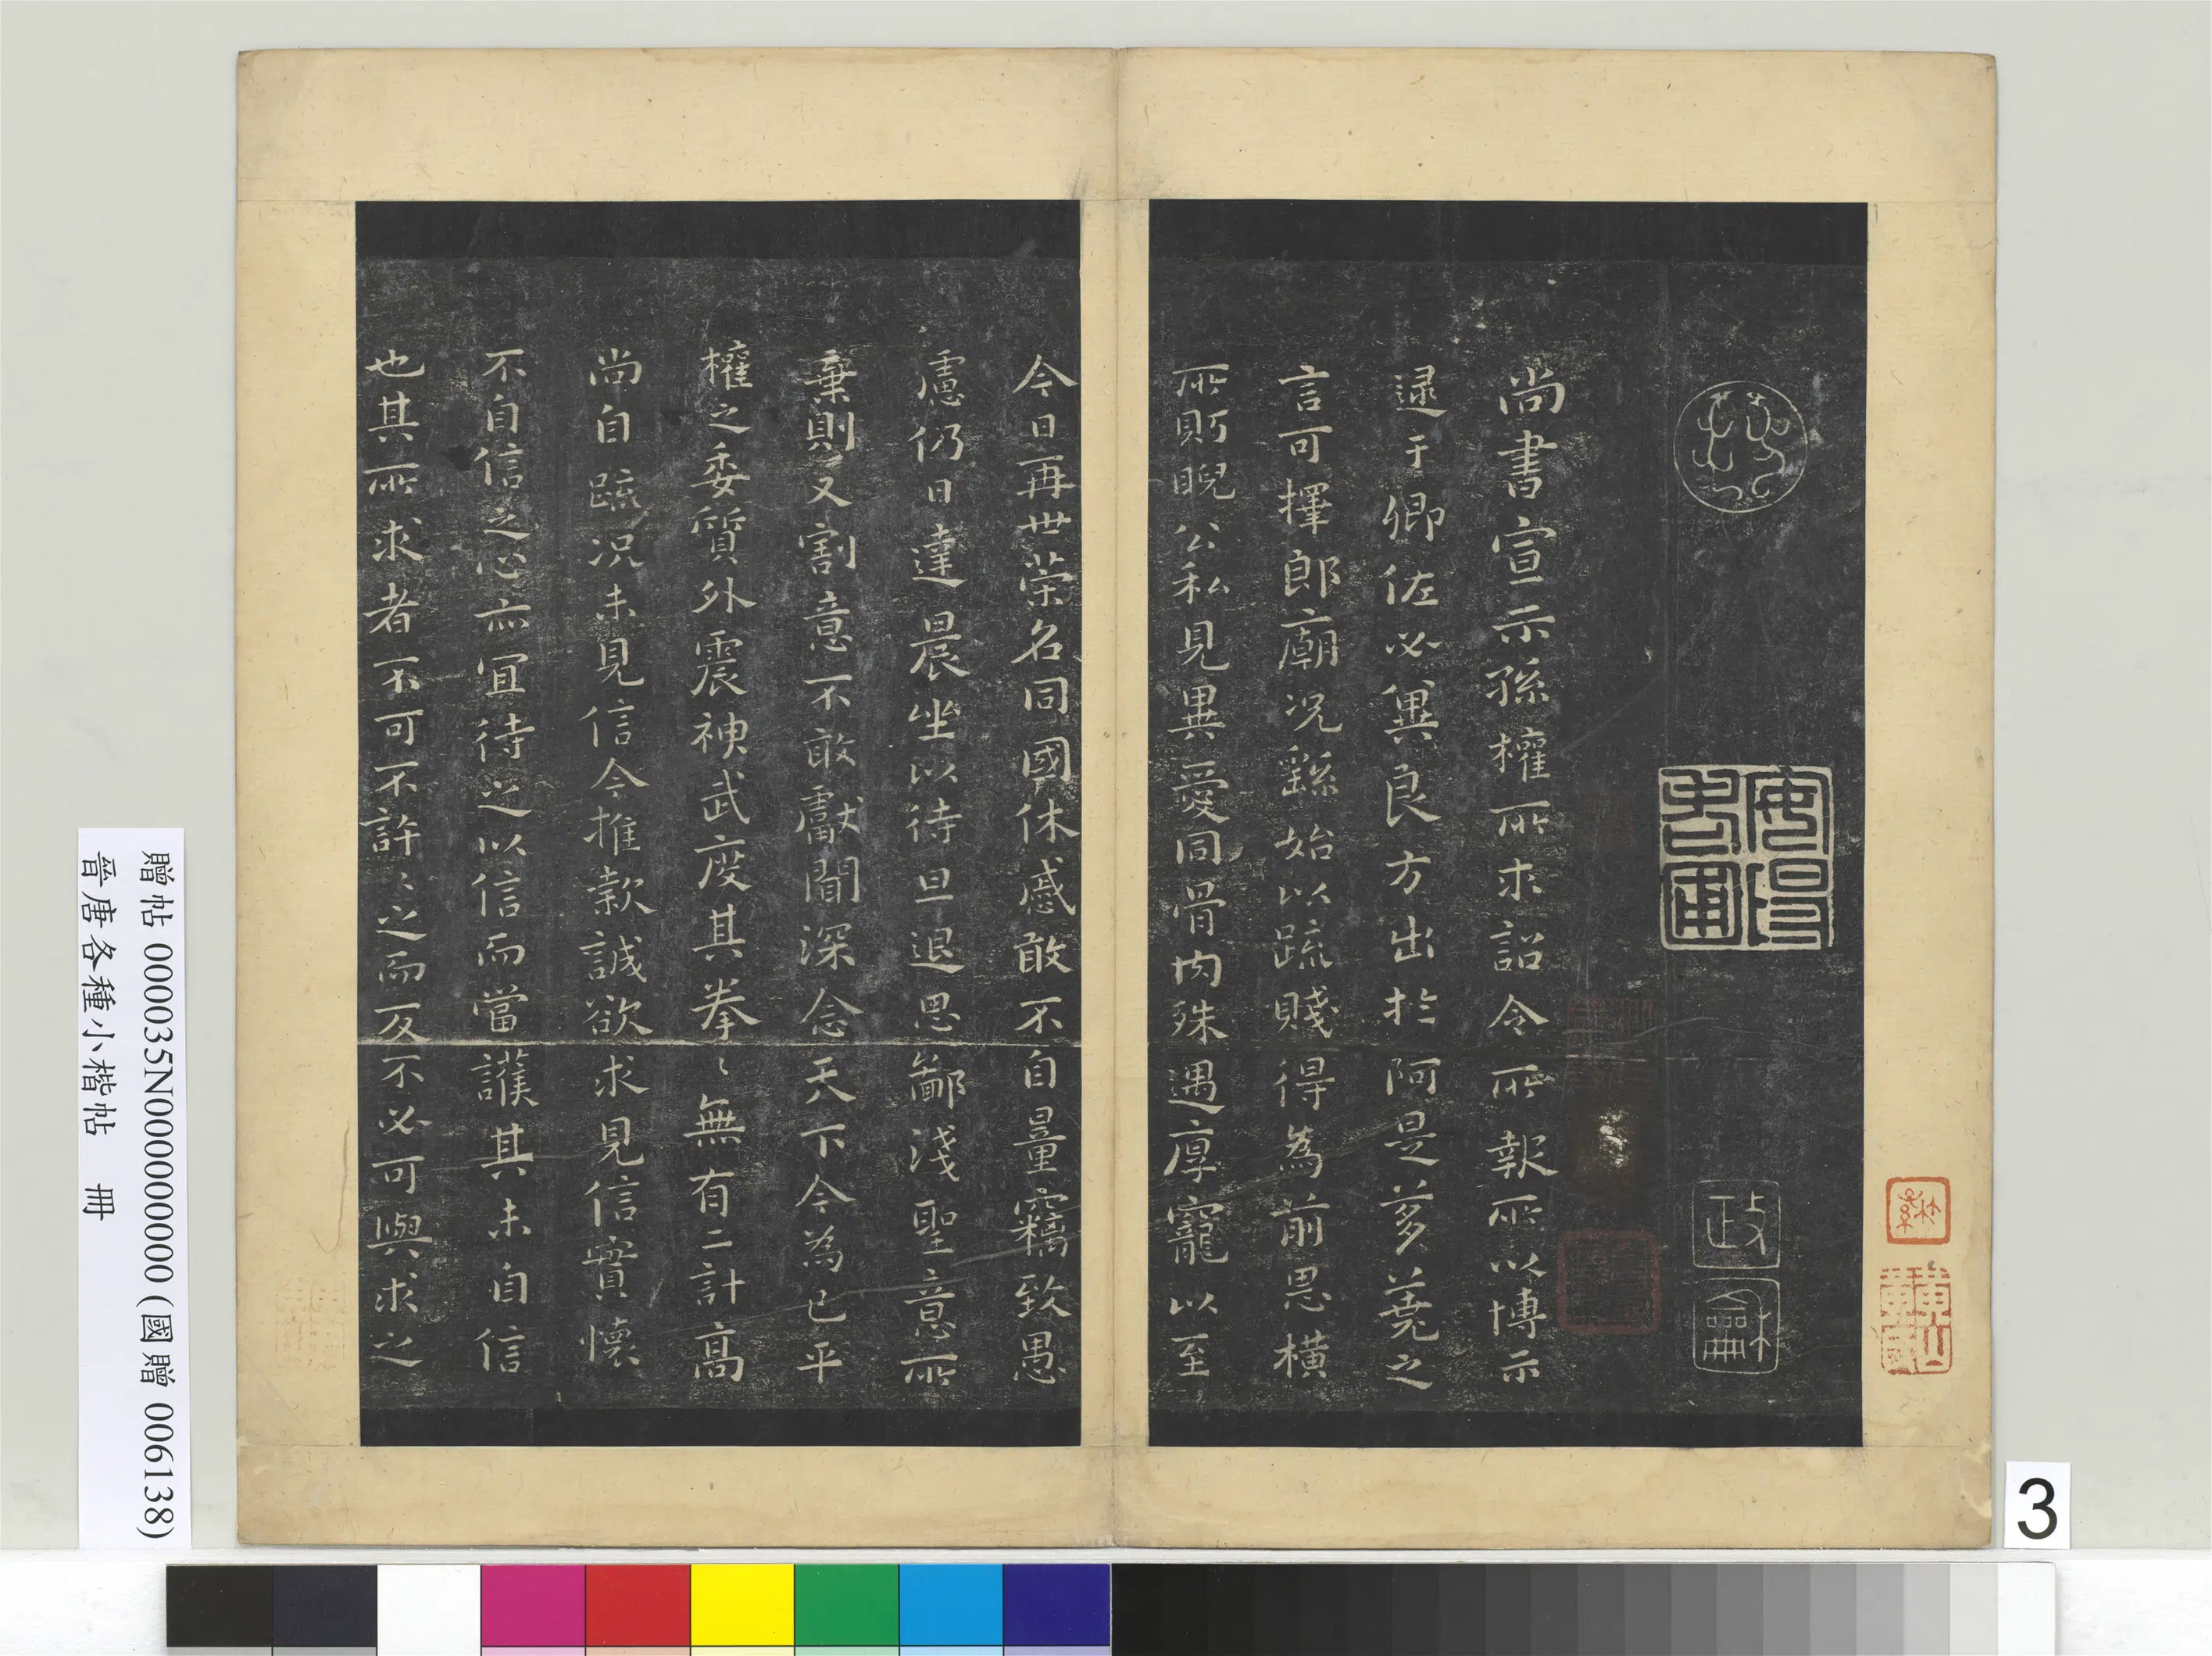 尚書宣示孫權所求詔令所報所以博示
逮于卿佐必冀良方出於阿是芻蕘之
言可擇郎廟況繇始以疏賤得為前恩橫
所貺睨公私見異愛同骨肉殊遇厚寵以至
今日再世榮名同國休慼敢不自量竊致愚
慮仍日達晨坐以待旦退思鄙淺聖意所
棄則又割意不敢獻聞深念天下今為已平
權之委質外震神武度其拳〻無有二計高
尚自疏況未見信今推款誠欲求見信實懷
不自信之心亦宜待之以信而當護其未自信
也其所求者不可不許〻之而反不必可與求之
政
龢
贈帖 000035N000000000 (國贈 006138)
晉唐各種小楷帖 冊
3